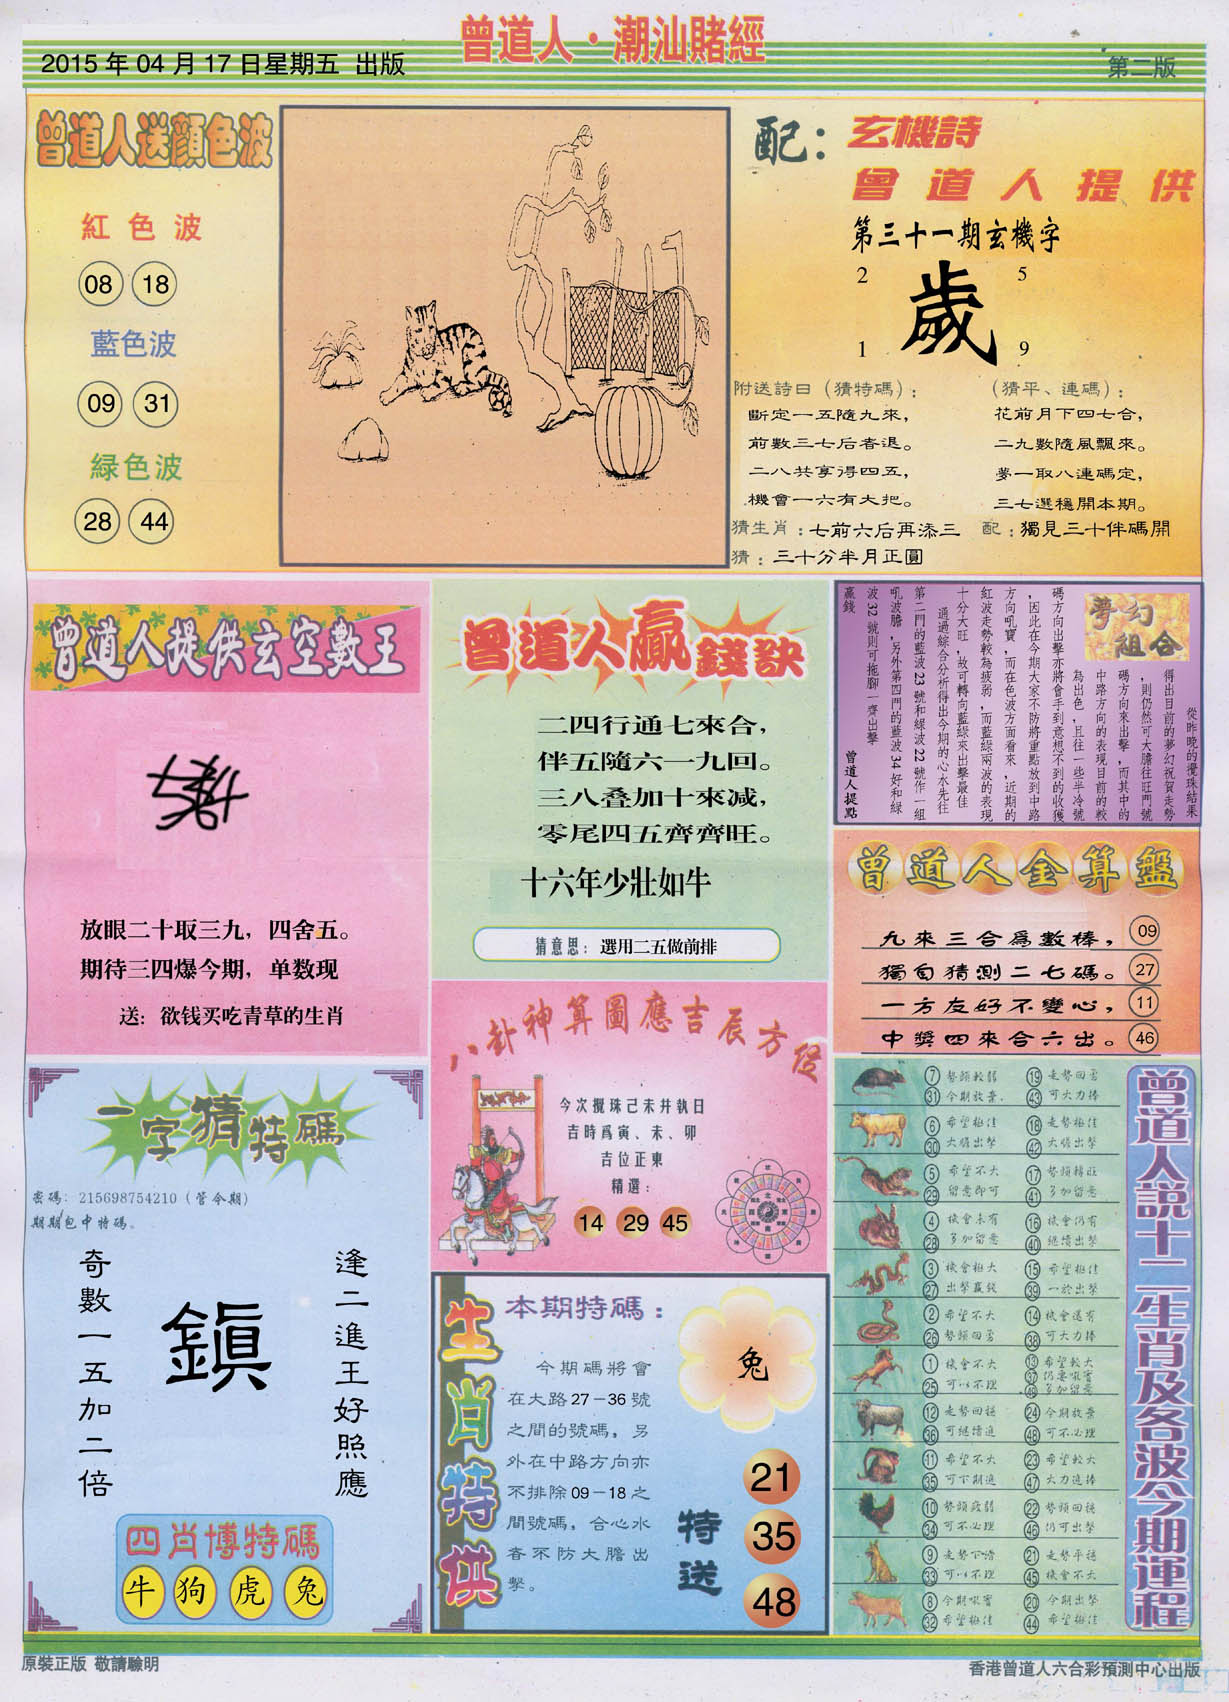 曾道人·潮汕賭經
2015 年 04 月 17 日星期五 出版
第二版
曾道人送顏色波
紅色波
08 18
藍色波
09 31
緑色波
28 44
配：玄機詩
曾道人提供
第三十一期玄機字
2 5
歲
1 9
附送詩曰（猜特碼）：
斷定一五隨九來，
前數三七后香退。
二八共享得四五，
機會一六有大把。
（猜平、連碼）：
花前月下四七合，
二九數隨風飄來。
夢一取八連碼定，
三七選穩開本期。
猜生肖：七前六后再添三
配：獨見三十伴碼開
猜：三十分半月正圓
曾道人提供玄空數王
放眼二十取三九，四舍五。
期待三四爆今期，单数现
送：欲钱买吃青草的生肖
曾道人贏錢訣
二四行通七來合，
伴五隨六一九回。
三八叠加十來减，
零尾四五齊齊旺。
十六年少壯如牛
猜意思：選用二五做前排
夢幻組合
從昨晚的攪珠結果
得出目前的夢幻祝賀走勢
，則仍然可大膽往旺門號
碼方向來出擊，而其中的
中路方向的表現目前的較
為出色，且往一些半冷號
碼方向出擊亦將會手到意想不到的收獲
，因此在今期大家不防將重點放到中路
方向吼寶，而在色波方面看來，近期的
紅波走勢較為疲弱，而藍綠兩波的表現
十分大旺，故可轉向藍綠來出擊最佳
通過綜合分析得出今期的心水先往
第二門的藍波 23 號和綠波 22 號作一組
吼波膽，另外第四門的藍波 34 好和綠
波 32 號則可拖腳一齊出擊
贏錢
曾道人提點
曾道人金算盤
九來三合爲數棒， 09
獨自猜測二七碼。 27
一方友好不變心， 11
中獎四來合六出。 46
一字猜特碼
密碼：215698754210（管令期）
期期包中特碼。
逢二進王好照應
鎭
奇數一五加二倍
四肖博特碼
牛 狗 虎 兔
八卦神算圖應吉辰方位
今次攪珠己未井執日
吉時爲寅、未、卯
吉位正東
精選：
14 29 45
生肖特供
本期特碼：
今期碼將會
在大路27－36號
之間的號碼，另
外在中路方向亦
不排除09－18之
間號碼，合心水
者不防大膽出
擊。
兔
特送
21
35
48
曾道人説十二生肖及各波今期運程
7 勢頭較弱 19 走勢回勇
31 今期放棄 43 可大力捧
6 希望極佳 18 走勢極佳
30 大膽出擊 42 大膽出擊
5 希望不大 17 勢頭轉旺
29 留意即可 41 多加留意
4 機會未有 16 機會仍有
28 多加留意 40 繼續出擊
3 機會極大 15 希望極佳
27 出擊贏錢 39 一於出擊
2 希望不大 14 機會還有
26 勢頭回勇 38 可大力捧
1 機會不大 13 希望較大
25 可以不理 37 仍要吸實
49 多加留意
12 走勢回穩 24 今期放棄
36 可繼續追 48 可不必理
11 希望不大 23 希望較大
35 可下期追 47 大力追捧
10 勢頭疲弱 22 勢頭回穩
34 可不必理 46 仍可出擊
9 走勢下滑 21 走勢平穩
33 可以不理 45 機會不大
8 今期吸實 20 今期出擊
32 希望極佳 44 希望極佳
原裝正版 敬請驗明
香港曾道人六合彩預測中心出版